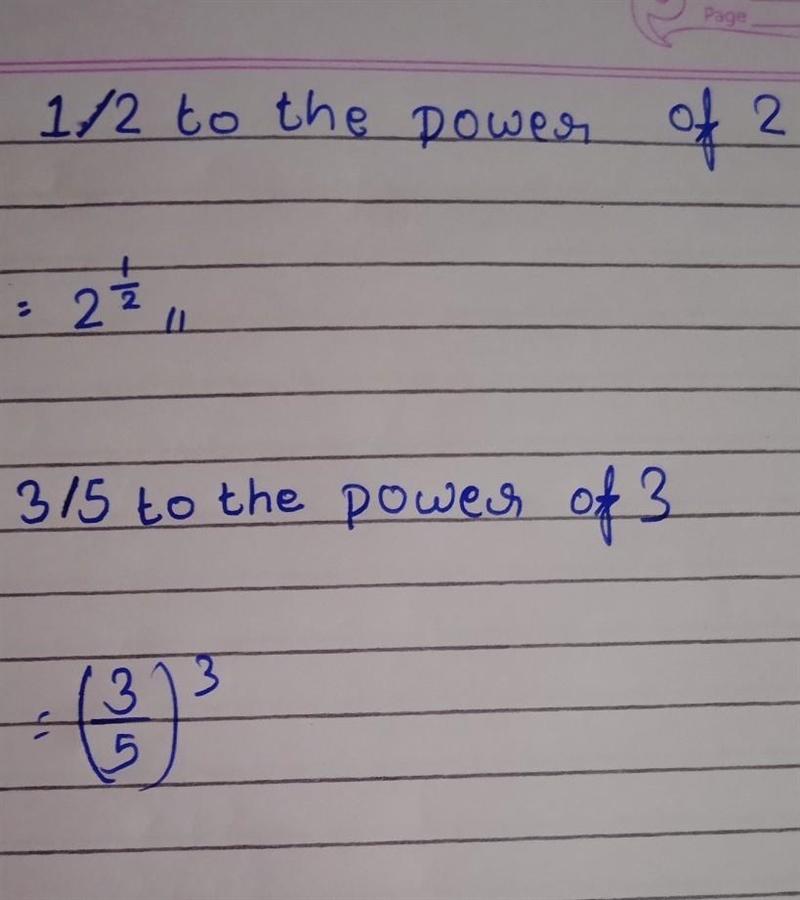 Page
1/2 to the power of 2
= 2^{1/2} //
3/5 to the power of 3
= (3/5)^3